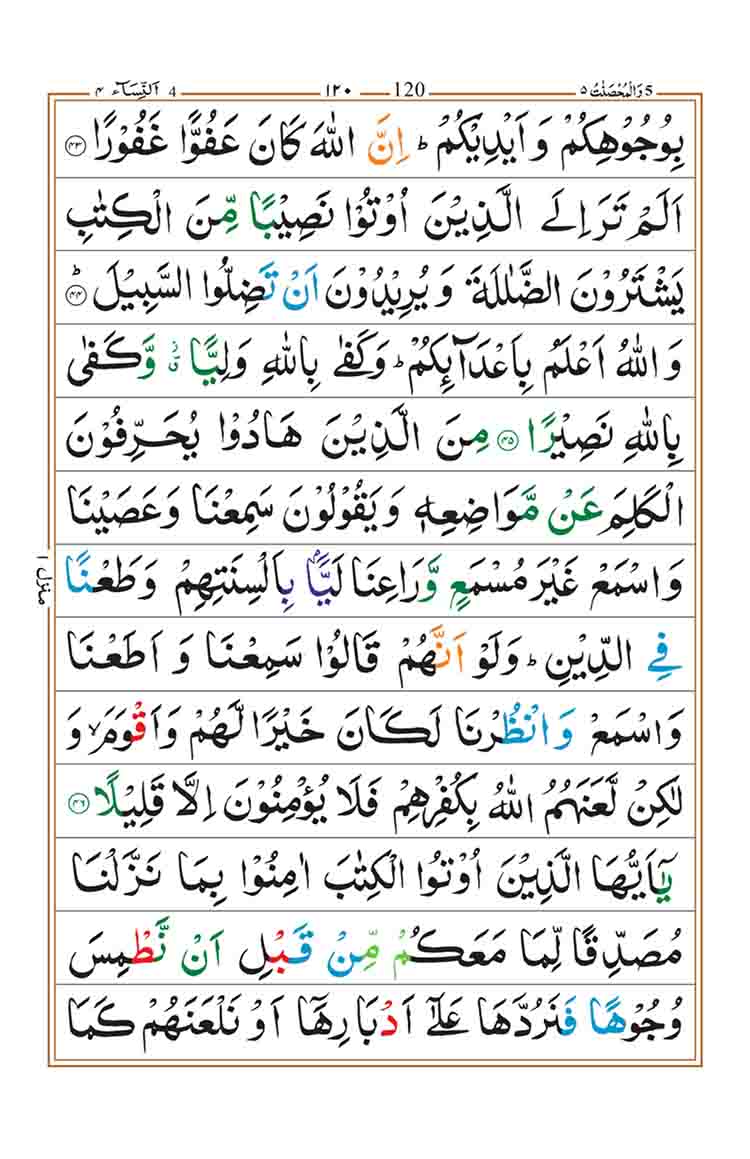 5 وَالْمُحْصَنٰتُ ٥ 120 ١٢٠ 4 اَلنِّسَآء ٤
بِوُجُوْهِكُمْ وَ اَيْدِيْكُمْ ؕ اِنَّ اللّٰهَ كَانَ عَفُوًّا غَفُوْرًا ﴿۴۳﴾
اَلَمْ تَرَ اِلَى الَّذِيْنَ اُوْتُوْا نَصِيْبًا مِّنَ الْكِتٰبِ
يَشْتَرُوْنَ الضَّلٰلَةَ وَ يُرِيْدُوْنَ اَنْ تَضِلُّوا السَّبِيْلَ ﴿۴۴﴾ؕ
وَ اللّٰهُ اَعْلَمُ بِاَعْدَآئِكُمْ ؕ وَ كَفٰى بِاللّٰهِ وَلِيًّا ۗۙ وَّ كَفٰى
بِاللّٰهِ نَصِيْرًا ﴿۴۵﴾ مِنَ الَّذِيْنَ هَادُوْا يُحَرِّفُوْنَ
الْكَلِمَ عَنْ مَّوَاضِعِهٖ وَ يَقُوْلُوْنَ سَمِعْنَا وَ عَصَيْنَا
وَ اسْمَعْ غَيْرَ مُسْمَعٍ وَّ رَاعِنَا لَيًّۢا بِاَلْسِنَتِهِمْ وَ طَعْنًا
فِى الدِّيْنِ ؕ وَ لَوْ اَنَّهُمْ قَالُوْا سَمِعْنَا وَ اَطَعْنَا
وَ اسْمَعْ وَ انْظُرْنَا لَكَانَ خَيْرًا لَّهُمْ وَ اَقْوَمَ ۙ وَ
لٰكِنْ لَّعَنَهُمُ اللّٰهُ بِكُفْرِهِمْ فَلَا يُؤْمِنُوْنَ اِلَّا قَلِيْلًا ﴿۴۶﴾
يٰۤاَيُّهَا الَّذِيْنَ اُوْتُوا الْكِتٰبَ اٰمِنُوْا بِمَا نَزَّلْنَا
مُصَدِّقًا لِّمَا مَعَكُمْ مِّنْ قَبْلِ اَنْ نَّطْمِسَ
وُجُوْهًا فَنَرُدَّهَا عَلٰۤى اَدْبَارِهَاۤ اَوْ نَلْعَنَهُمْ كَمَا
منزل ١